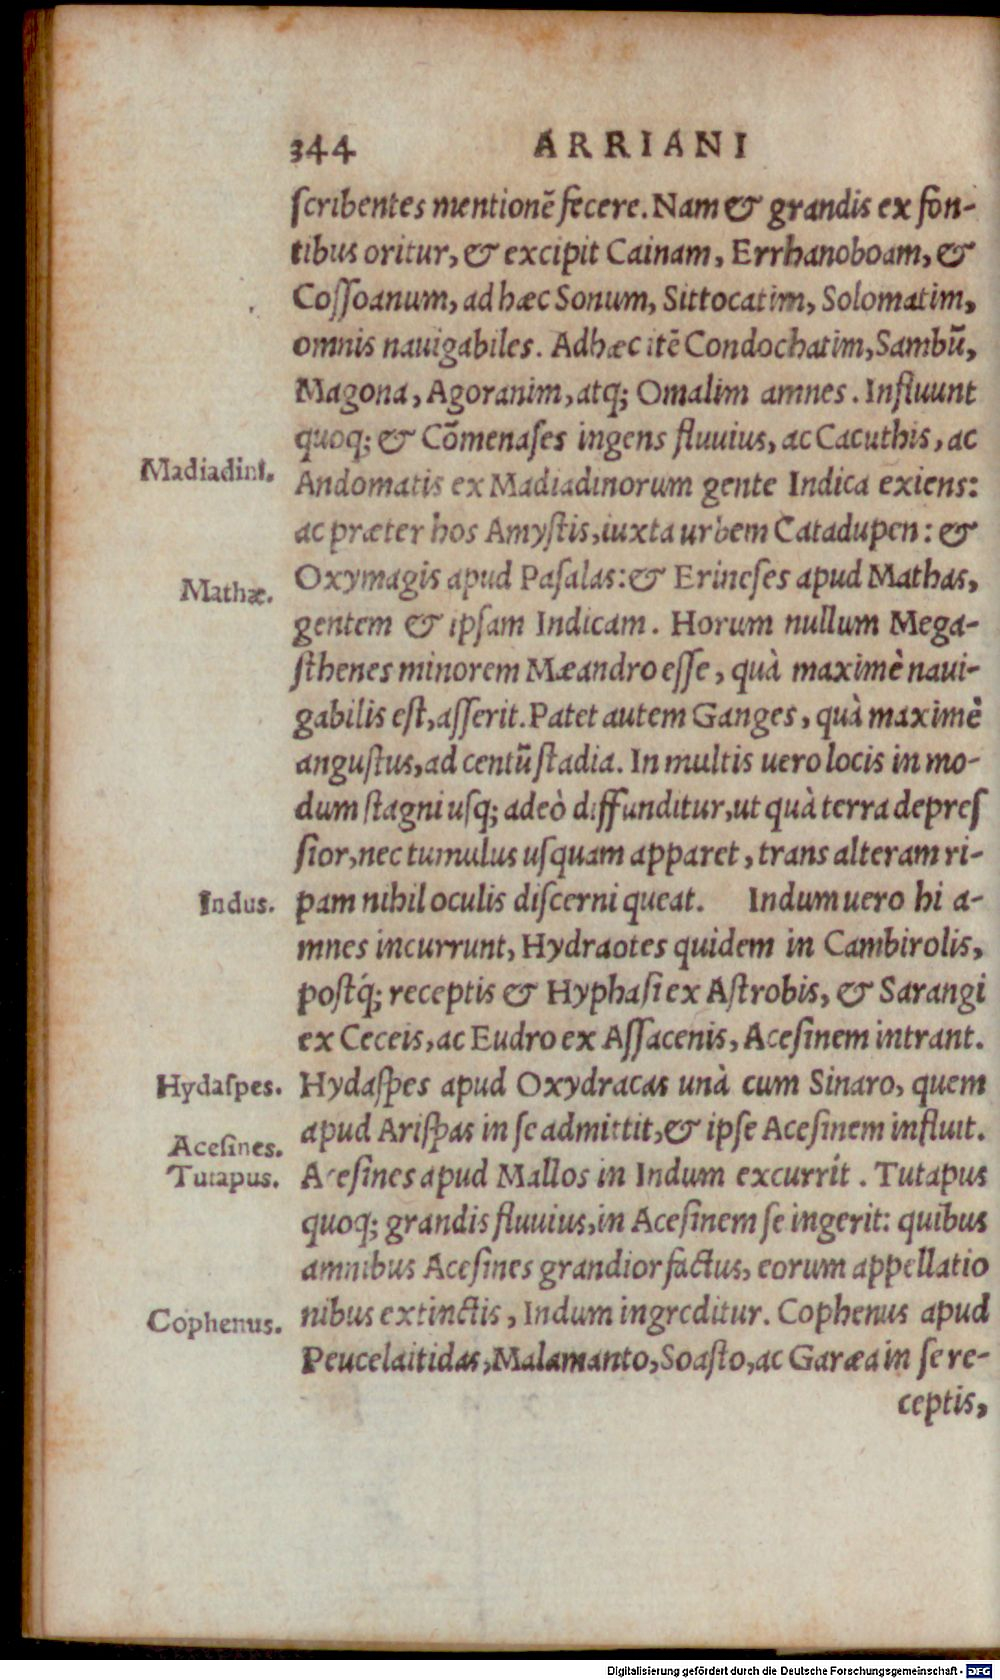 344 ARRIANI
ſcribentes mentionẽ fecere. Nam & grandis ex fon-
tibus oritur, & excipit Cainam, Errhanoboam, &
Coſſoanum, ad hæc Sonum, Sittocatim, Solomatim,
omnis nauigabiles. Adhæc itẽ Condochatim, Sambũ,
Magona, Agoranim, atq; Omalim amnes. Influunt
quoq; & Cõmenaſes ingens fluuius, ac Cacuthis, ac
Madiadini.
Andomatis ex Madiadinorum gente Indica exiens:
ac præter hos Amyſtis, iuxta urbem Catadupen: &
Oxymagis apud Paſalas: & Erineſes apud Mathas,
Mathæ.
gentem & ipſam Indicam. Horum nullum Mega-
ſthenes minorem Mæandro eſſe, quà maximè naui-
gabilis eſt, aſſerit. Patet autem Ganges, quà maximè
anguſtus, ad centũ ſtadia. In multis uero locis in mo-
dum ſtagni uſq; adeò diffunditur, ut quà terra depreſ
ſior, nec tumulus uſquam apparet, trans alteram ri-
Indus.
pam nihil oculis diſcerni queat. Indum uero hi a-
mnes incurrunt, Hydraotes quidem in Cambirolis,
poſtq́; receptis & Hyphaſi ex Aſtrobis, & Sarangi
ex Ceceis, ac Eudro ex Aſſacenis, Aceſinem intrant.
Hydaſpes.
Hydaſpes apud Oxydracas unà cum Sinaro, quem
apud Ariſpas in ſe admittit, & ipſe Aceſinem influit.
Aceſines.
Tutapus.
Aceſines apud Mallos in Indum excurrit. Tutapus
quoq; grandis fluuius, in Aceſinem ſe ingerit: quibus
amnibus Aceſines grandior factus, eorum appellatio
nibus extinctis, Indum ingreditur. Cophenus apud
Cophenus.
Peucelaitidas, Malamanto, Soaſto, ac Garæa in ſe re-
ceptis,
Digitalisierung gefördert durch die Deutsche Forschungsgemeinschaft - DFG